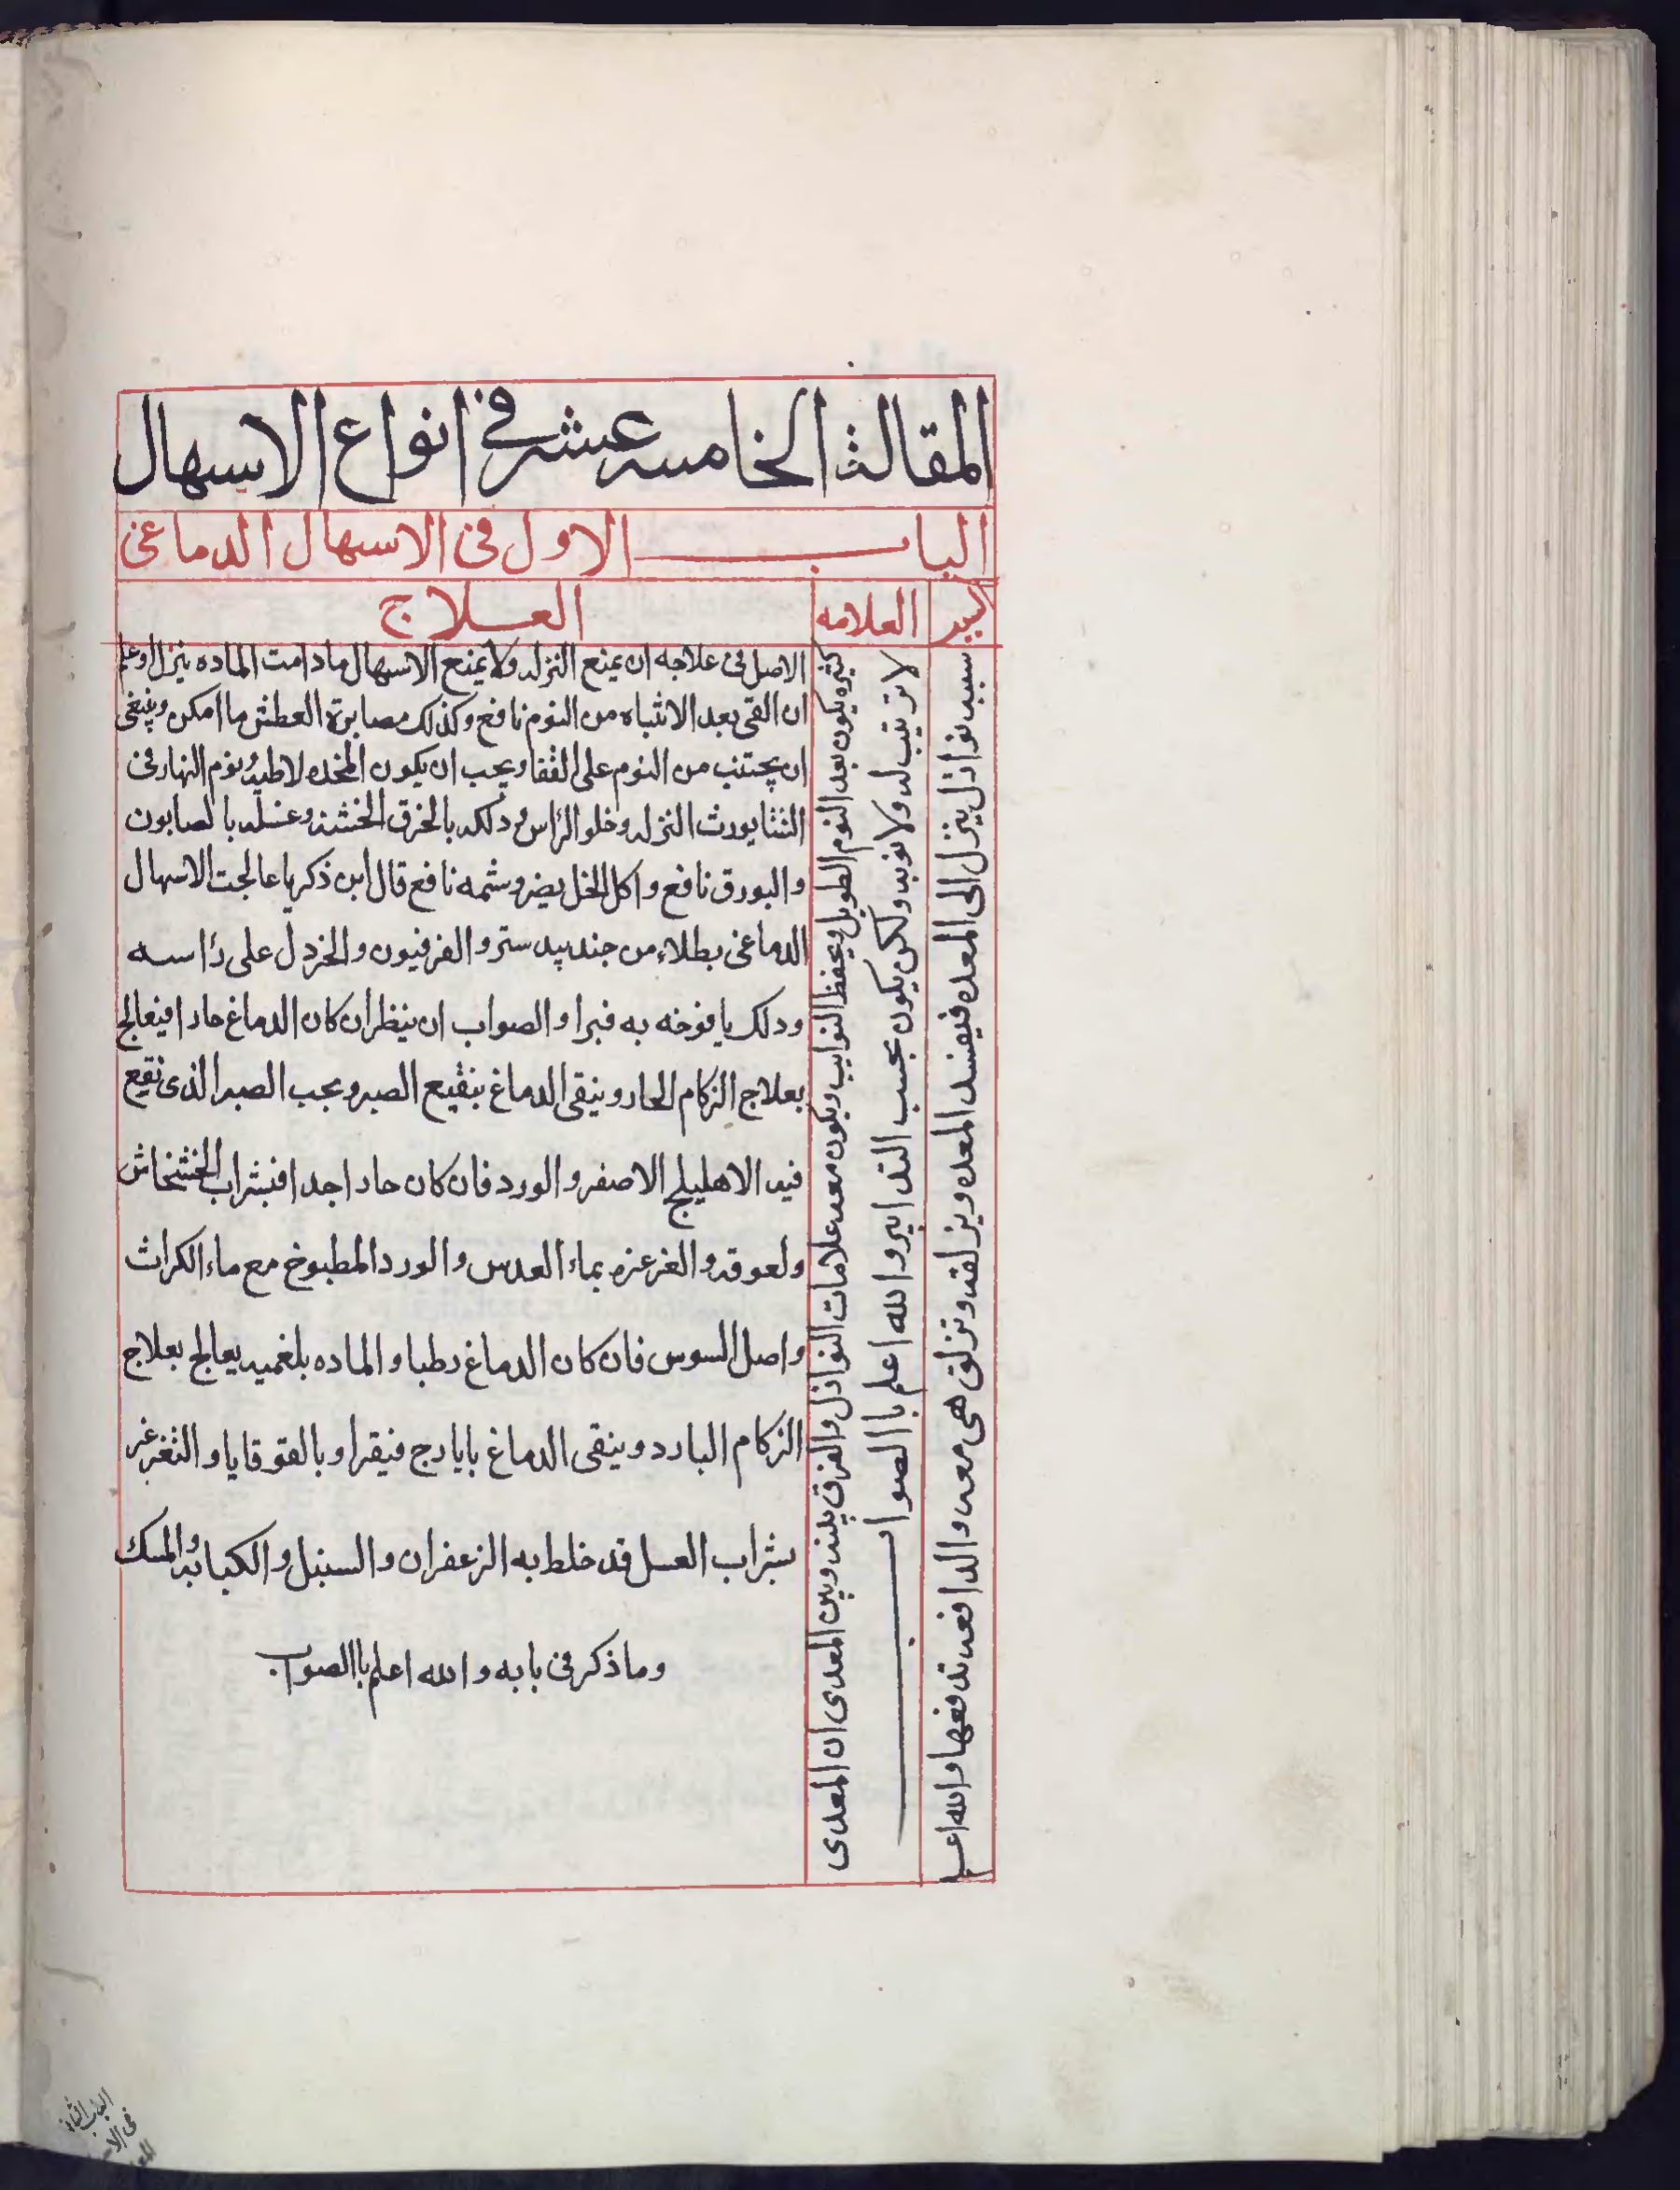 المقالة الخامسه عشر في انواع الاسهال
الباب الاول فى الاسهال الدماغى
السبب
العلامه
العلاج
سببه نوازل ينزل الى المعده فيفسد المعده ويزلقه وتزلق هى معه والدافعه تدفعها والله اعلم
كثيره يكون بعد النوم الطويل ويحفظ النوايب ويكون معه علامات النوازل والفرق بينه وبين المعدى ان المعدى
لا ترتيب له ولا نوبه ولكن يكون بحسب التدابير والله اعلم باالصواب
الاصل فى علاجه ان يمنع النزله ولا يمنع الاسهال مادامت الماده ينزل وعلم
ان القى بعد الانتباه من النوم نافع وكذلك مصابرة العطش ما امكن وينبغى
ان يجتنب من النوم على القفا ويجب ان يكون المخده لاطيه ونوم النهار فى
الشتا يورث النزله وحلو الراس ودلكه بالخرق الخشنه وغسله بالصابون
والبورق نافع واكل الخل يضر وشمه نافع قال ابن ذكريا عالجت الاسهال
الدماغى بطلاء من جندبيدستر والفرفيون والخردل على راسه
ودلك يافوخه به فبرا والصواب ان ينظر ان كان الدماغ حادا فيعالج
بعلاج الزكام الحار وينقى الدماغ بنقيع الصبر وبحب الصبر الذى نقيع
فيه الاهليلج الاصفر والورد فان كان حادا جدا فبشراب الخشخاش
ولعوقه والغرغره بماء العدس والورد المطبوخ مع ماء الكراث
واصل السوس فان كان الدماغ رطبا والماده بلغميه يعالج بعلاج
الزكام البارد وينقى الدماغ بايارج فيقرا وبالقوقايا والتغرغر
بشراب العسل قد خلط به الزعفران والسنبل والكبابه والمسك
وما ذكر فى بابه والله اعلم باالصواب
الباب الثانى
فى الاسـ
المعد